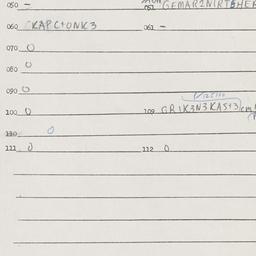 050 – 051 GEMAR2NIRTSHER
060 KAPC+ONK3 061 –
070 0
080 0
090 0
100 0 109 GR1K3N3KAS+3
110 0
111 0 112 0